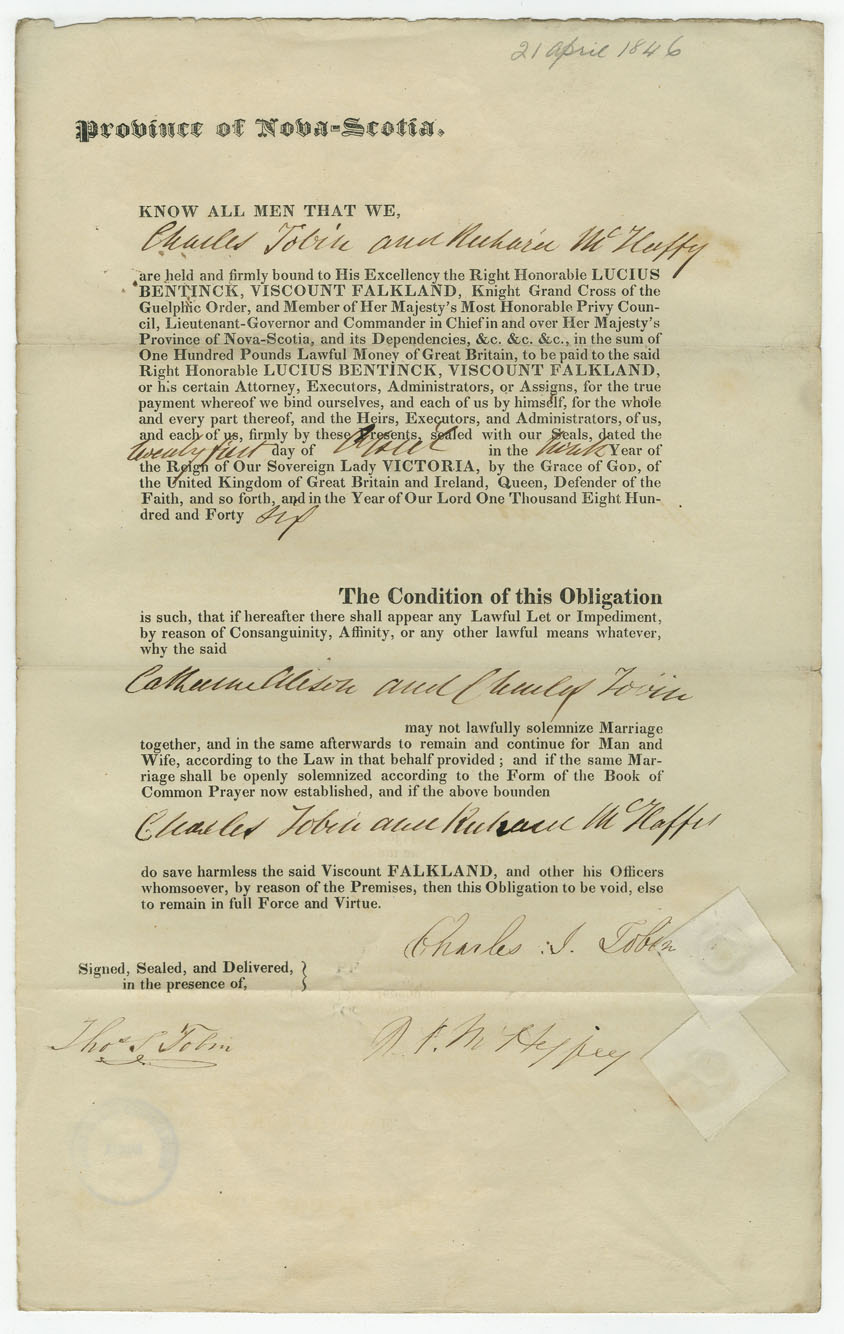 21 April 1846
Province of Nova-Scotia.
KNOW ALL MEN THAT WE,
Charles Tobin and Richard McHeffy
are held and firmly bound to His Excellency the Right Honorable LUCIUS
BENTINCK, VISCOUNT FALKLAND, Knight Grand Cross of the
Guelphic Order, and Member of Her Majesty's Most Honorable Privy Coun-
cil, Lieutenant-Governor and Commander in Chief in and over Her Majesty's
Province of Nova-Scotia, and its Dependencies, &c. &c. &c., in the sum of
One Hundred Pounds Lawful Money of Great Britain, to be paid to the said
Right Honorable LUCIUS BENTINCK, VISCOUNT FALKLAND,
or his certain Attorney, Executors, Administrators, or Assigns, for the true
payment whereof we bind ourselves, and each of us by himself, for the whole
and every part thereof, and the Heirs, Executors, and Administrators, of us,
and each of us, firmly by these Presents, sealed with our Seals, dated the
twenty first day of April in the ninth Year of
the Reign of Our Sovereign Lady VICTORIA, by the Grace of GOD, of
the United Kingdom of Great Britain and Ireland, Queen, Defender of the
Faith, and so forth, and in the Year of Our Lord One Thousand Eight Hun-
dred and Forty six
The Condition of this Obligation
is such, that if hereafter there shall appear any Lawful Let or Impediment,
by reason of Consanguinity, Affinity, or any other lawful means whatever,
why the said
Catherine Alison and Charles Tobin
may not lawfully solemnize Marriage
together, and in the same afterwards to remain and continue for Man and
Wife, according to the Law in that behalf provided ; and if the same Mar-
riage shall be openly solemnized according to the Form of the Book of
Common Prayer now established, and if the above bounden
Charles Tobin and Richard McHeffy
do save harmless the said Viscount FALKLAND, and other his Officers
whomsoever, by reason of the Premises, then this Obligation to be void, else
to remain in full Force and Virtue.
Charles J. Tobin
Signed, Sealed, and Delivered,
in the presence of,
Thos S Tobin
R. F. McHeffey